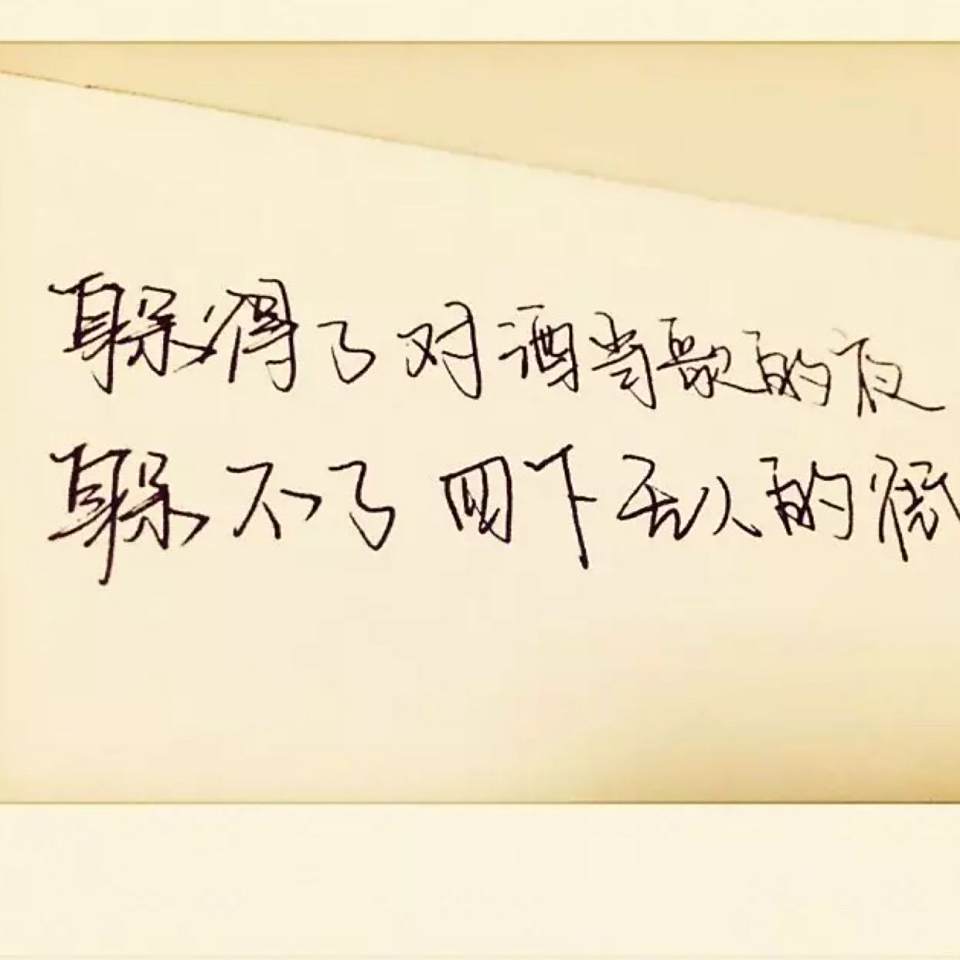 躲得了对酒当歌的夜
躲不了四下无人的街